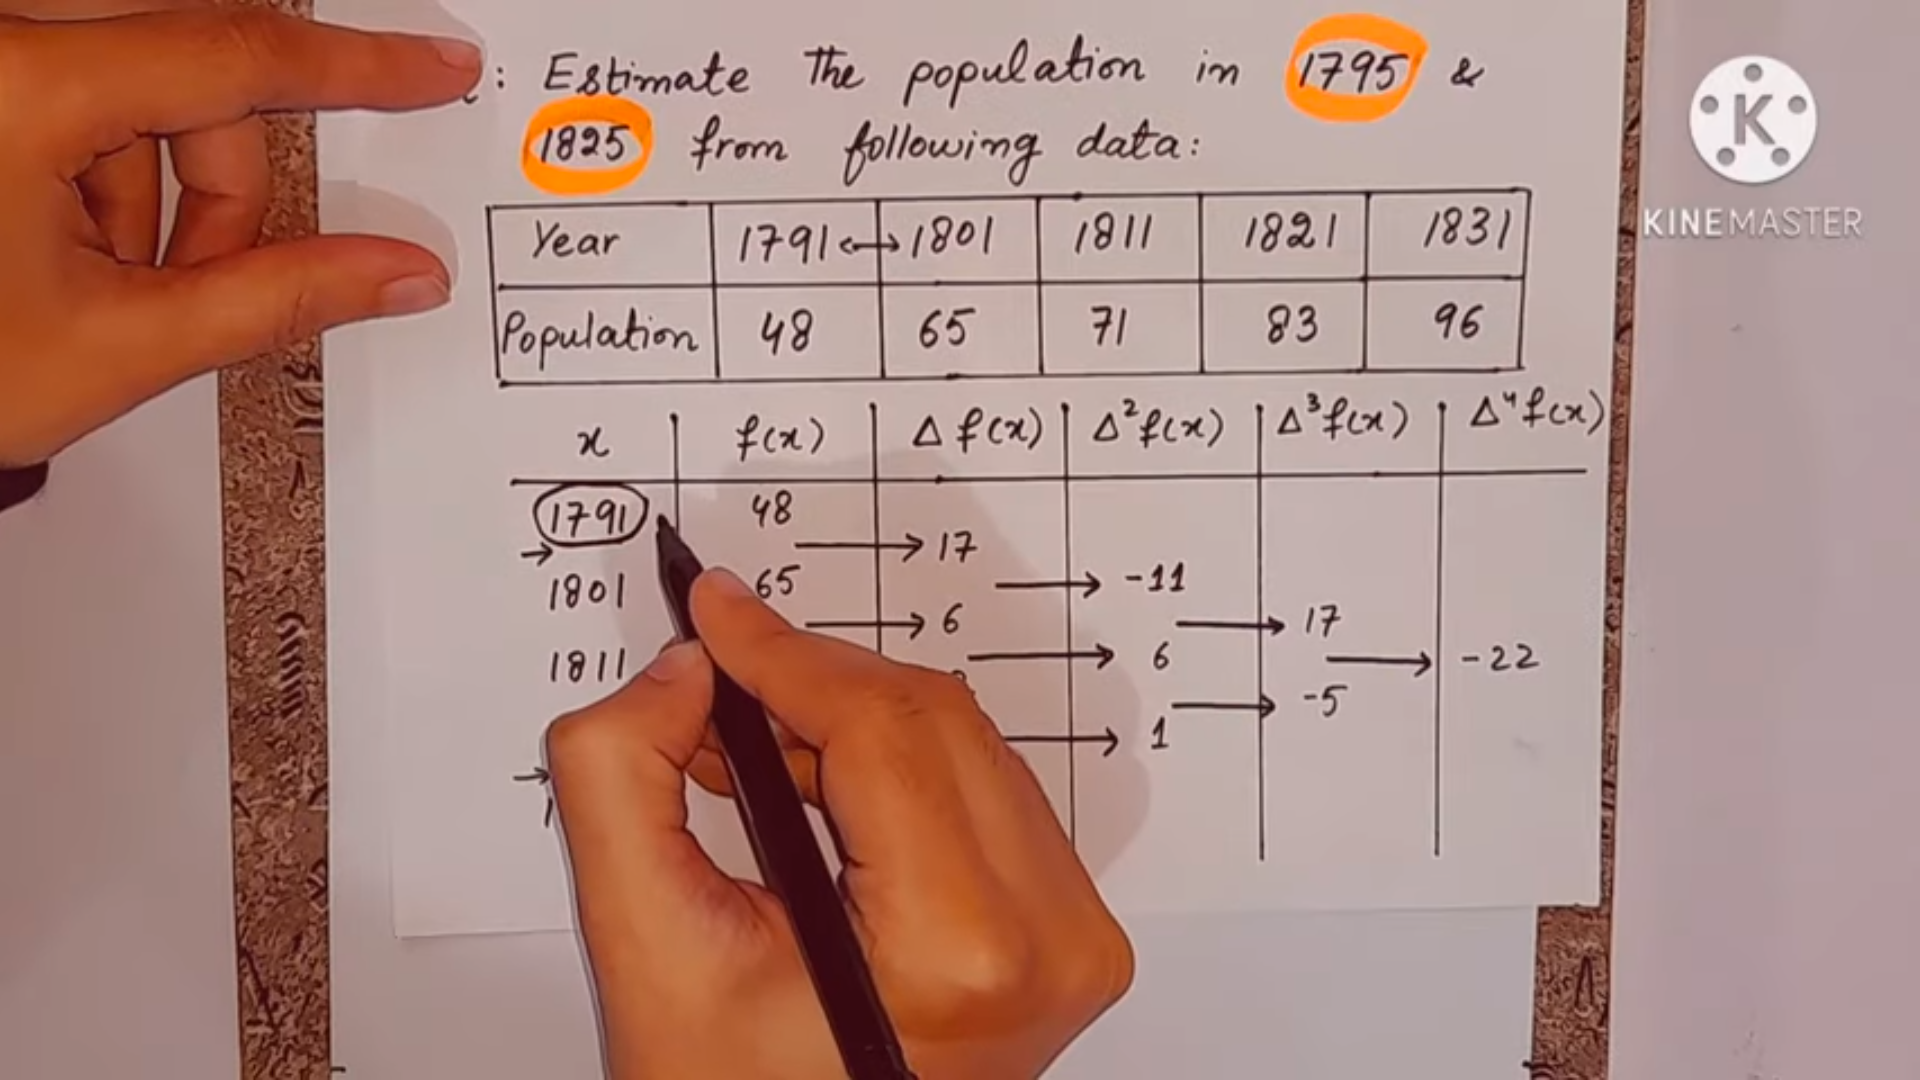 : Estimate the population in 1795 &
1825 from following data:
Year 1791 ↔ 1801 1811 1821 1831
Population 48 65 71 83 96
x f(x) Δ f(x) Δ²f(x) Δ³f(x) Δ⁴f(x)
1791 48
→ → 17
1801 65 → -11
→ 6 → 17
1811 → 6 → -22
→ -5
→ 1
→
K
KINEMASTER